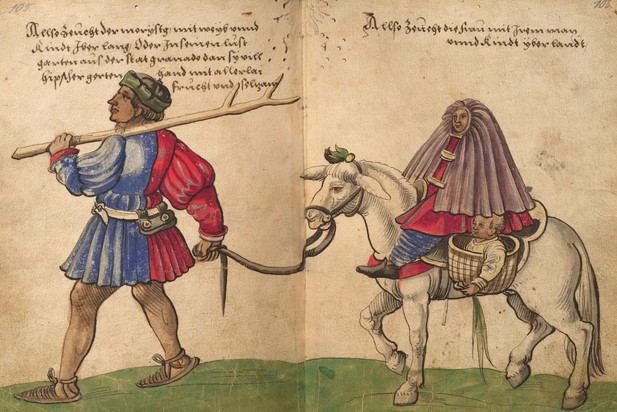 105
Allso zeucht der morysk mit weyb unnd
kindt Iber lanng Oder In seinen lust
garten aus der stat granada dan sy vill
hipscher garten hand mit allerlai
frucht vnd selzam
106
Allso zeucht die frau mit Irem man
vnnd kindt yber landt